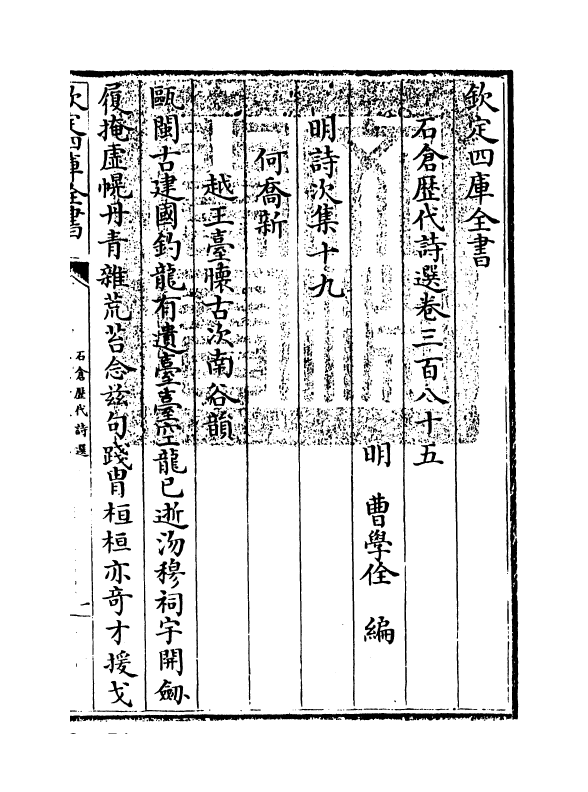 欽定四庫全書
石倉歴代詩選卷三百八十五
明　曹學佺　編
明詩次集十九
何喬新
越王臺懷古次南谷韻
甌閩古建國釣龍有遺臺臺空龍已逝沕穆祠宇開劔
履掩虛幌丹青雜荒苔念兹句踐胄桓桓亦奇才援戈
欽定四庫全書
石倉歷代詩選
一